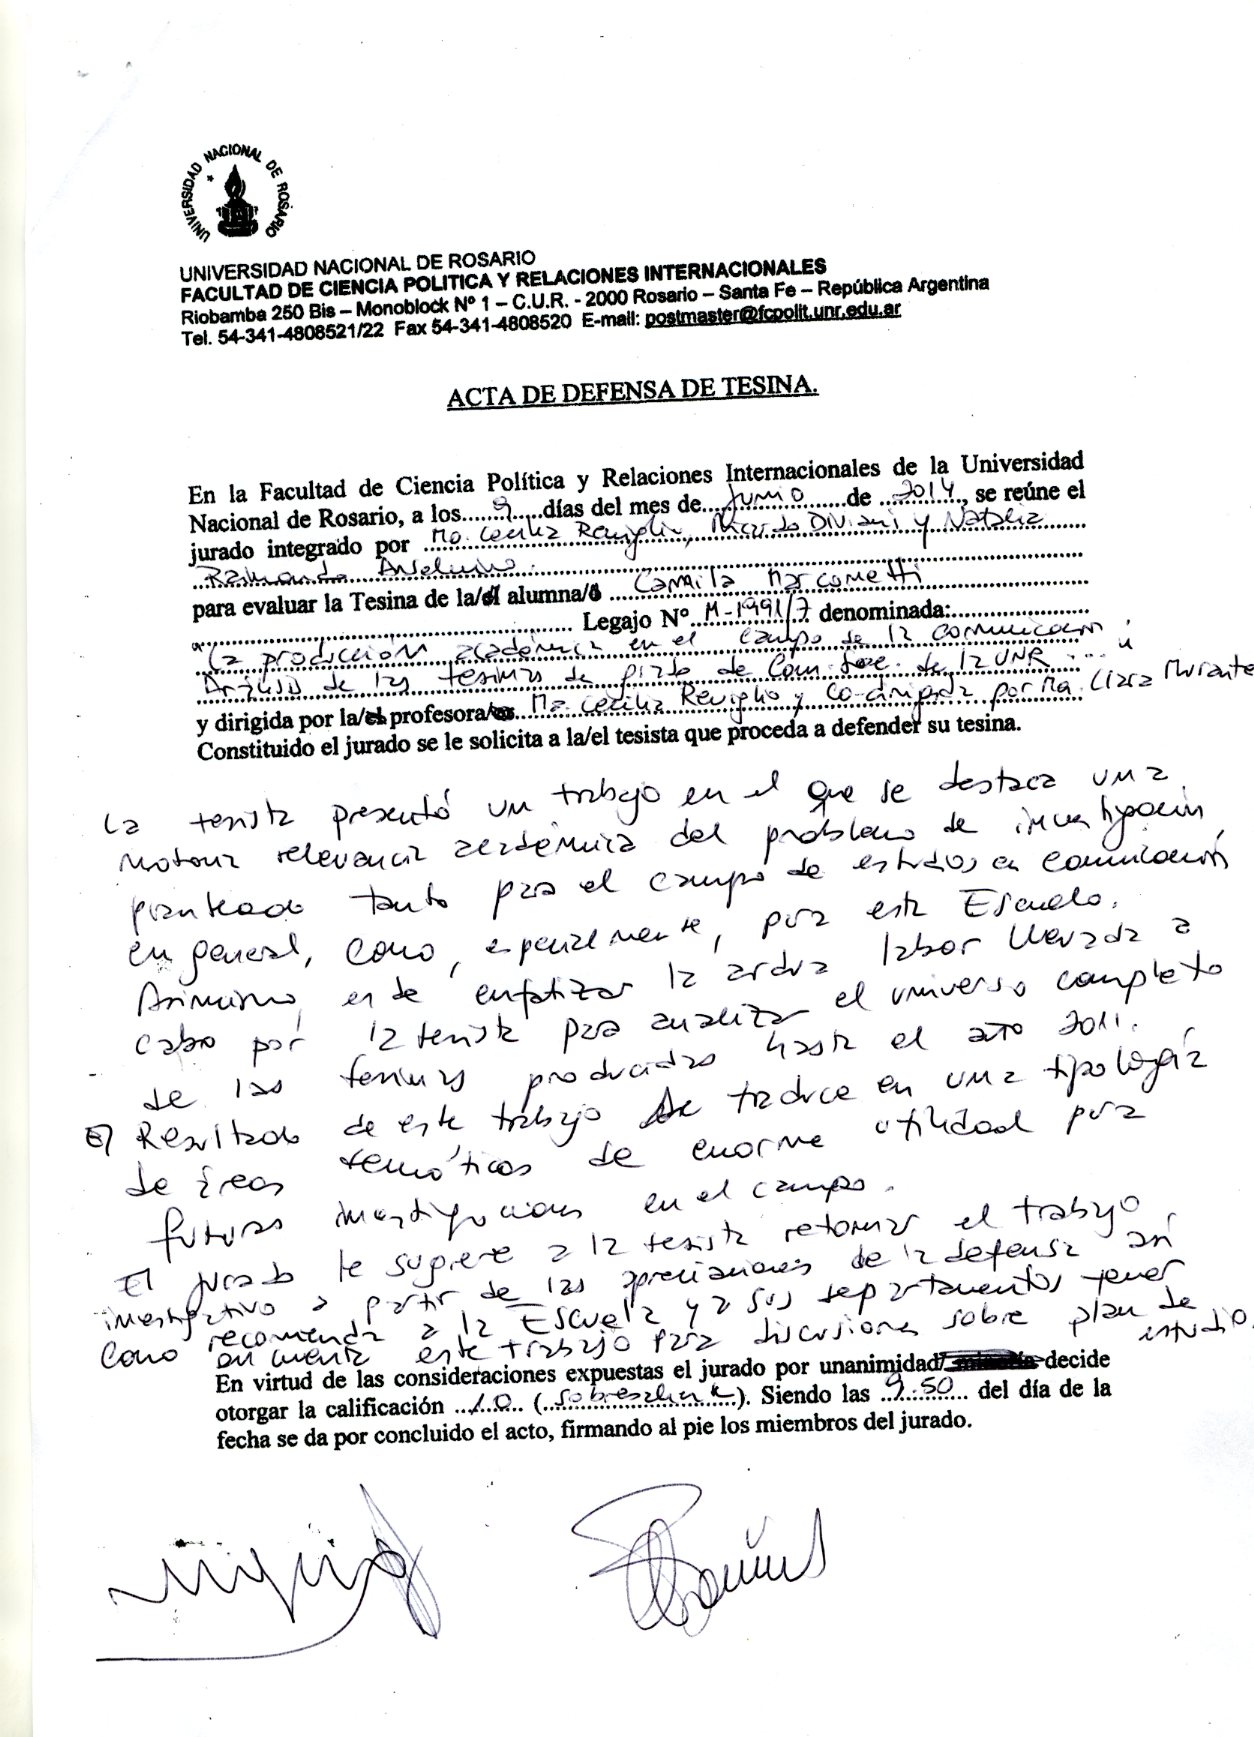 UNIVERSIDAD NACIONAL DE ROSARIO
UNIVERSIDAD NACIONAL DE ROSARIO
FACULTAD DE CIENCIA POLITICA Y RELACIONES INTERNACIONALES
Riobamba 250 Bis – Monoblock Nº 1 – C.U.R. - 2000 Rosario – Santa Fe – República Argentina
Tel. 54-341-4808521/22 Fax 54-341-4808520 E-mail: postmaster@fcpolit.unr.edu.ar
ACTA DE DEFENSA DE TESINA.
En la Facultad de Ciencia Política y Relaciones Internacionales de la Universidad
Nacional de Rosario, a los 9 días del mes de junio de 2014, se reúne el
jurado integrado por Ma. Cecilia Reviglio, Ricardo Diviani y Natalia
Raimondo Anselmino.
para evaluar la Tesina de la/el alumna/o Camila Marconetti
Legajo Nº M-1991/7 denominada:
"La producción académica en el campo de la comunicación.
Análisis de las tesinas de grado de Com. Soc. de la UNR"
y dirigida por la/el profesora/or Ma. Cecilia Reviglio y Co-dirigida por Ma. Clara Murante
Constituido el jurado se le solicita a la/el tesista que proceda a defender su tesina.
La tesista presentó un trabajo en el que se destaca una
notoria relevancia académica del problema de investigación
planteado tanto para el campo de estudios en comunicación,
en general, como, especialmente, para esta Escuela.
Asimismo, es de enfatizar la ardua labor llevada a
cabo por la tesista para analizar el universo completo
de las tesinas producidas hasta el año 2011.
El Resultado de este trabajo se traduce en una tipología
de áreas temáticas de enorme utilidad para
futuras investigaciones en el campo.
El jurado le sugiere a la tesista retomar el trabajo
investigativo a partir de las apreciaciones de la defensa, así
como recomenda a la Escuela y a sus departamentos tener
en cuenta este trabajo para discusiones sobre plan de
estudio.
En virtud de las consideraciones expuestas el jurado por unanimidad/ decide
otorgar la calificación 10 (sobresaliente). Siendo las 9:50 del día de la
fecha se da por concluido el acto, firmando al pie los miembros del jurado.